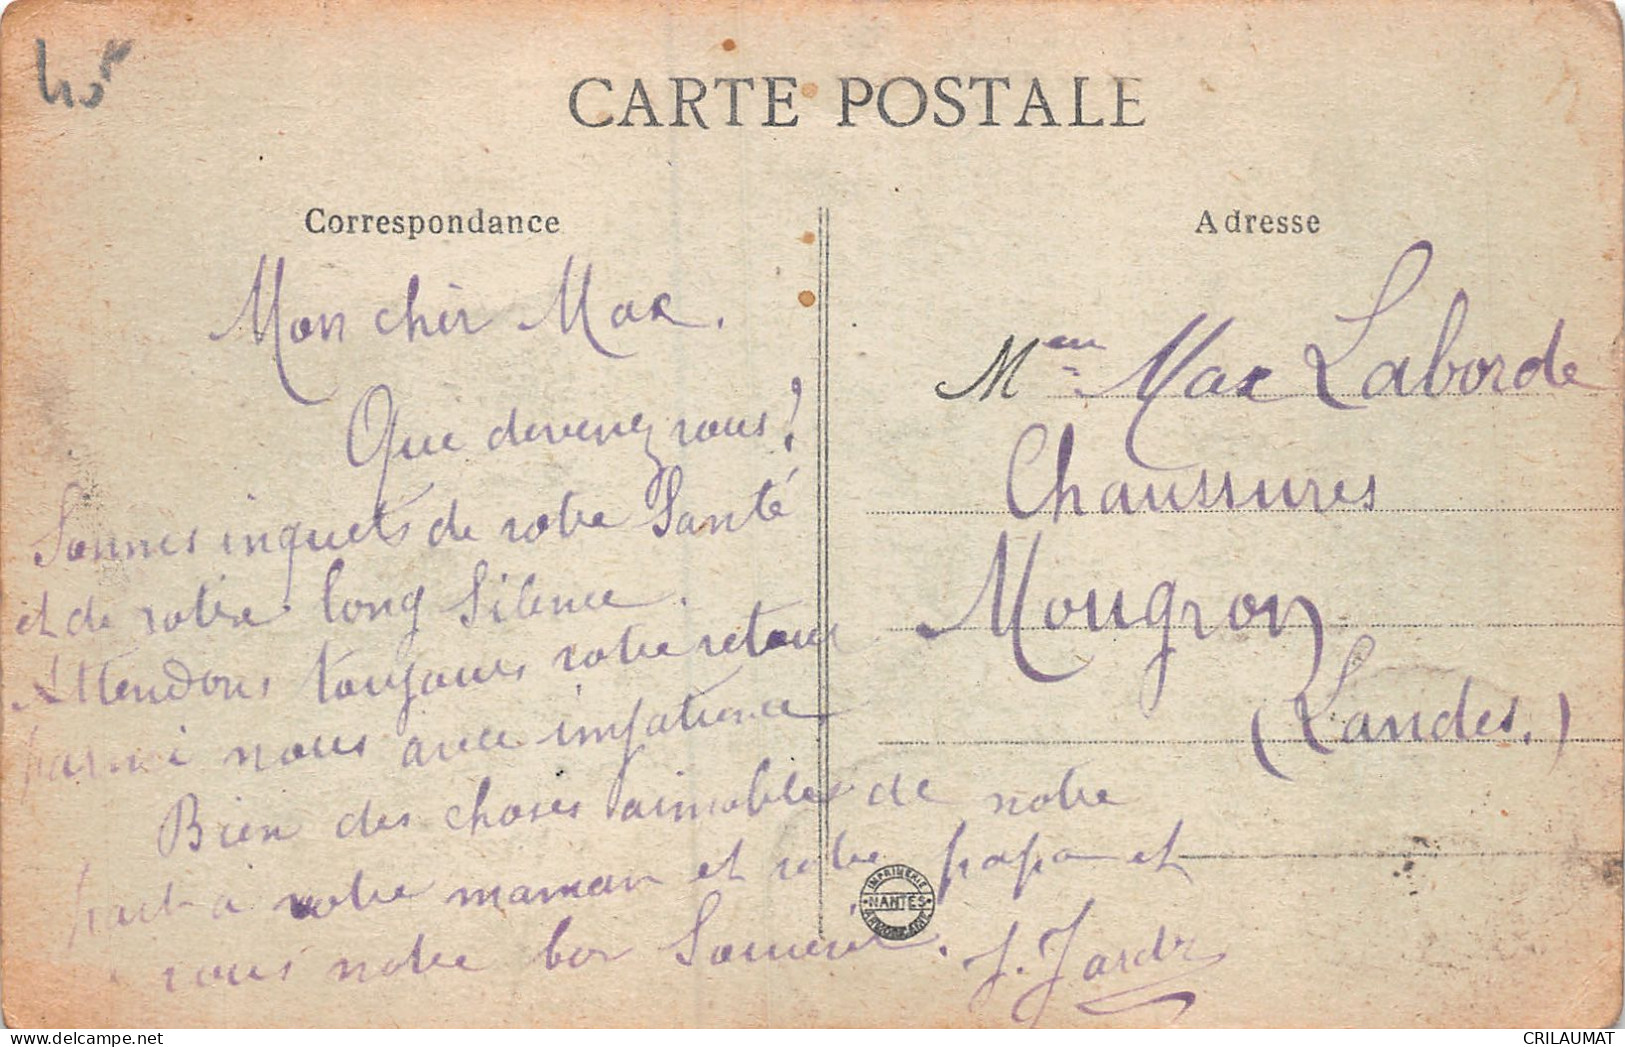 45f
CARTE POSTALE
Correspondance
Mon cher Max.
Que devenez vous?
Sommes inquiets de votre Santé
et de votre long Silence.
Attendons toujours votre retour
parmi nous avec impatience
Bien des choses aimables de notre
part à votre maman et votre papa et
vous notre bon Souvenir. J. Jardr
Adresse
Mr Max Laborde
Chaussures
Mougron
(Landes.)
IMPRIMERIE
NANTES
ARMORICAINE
CRILAUMAT